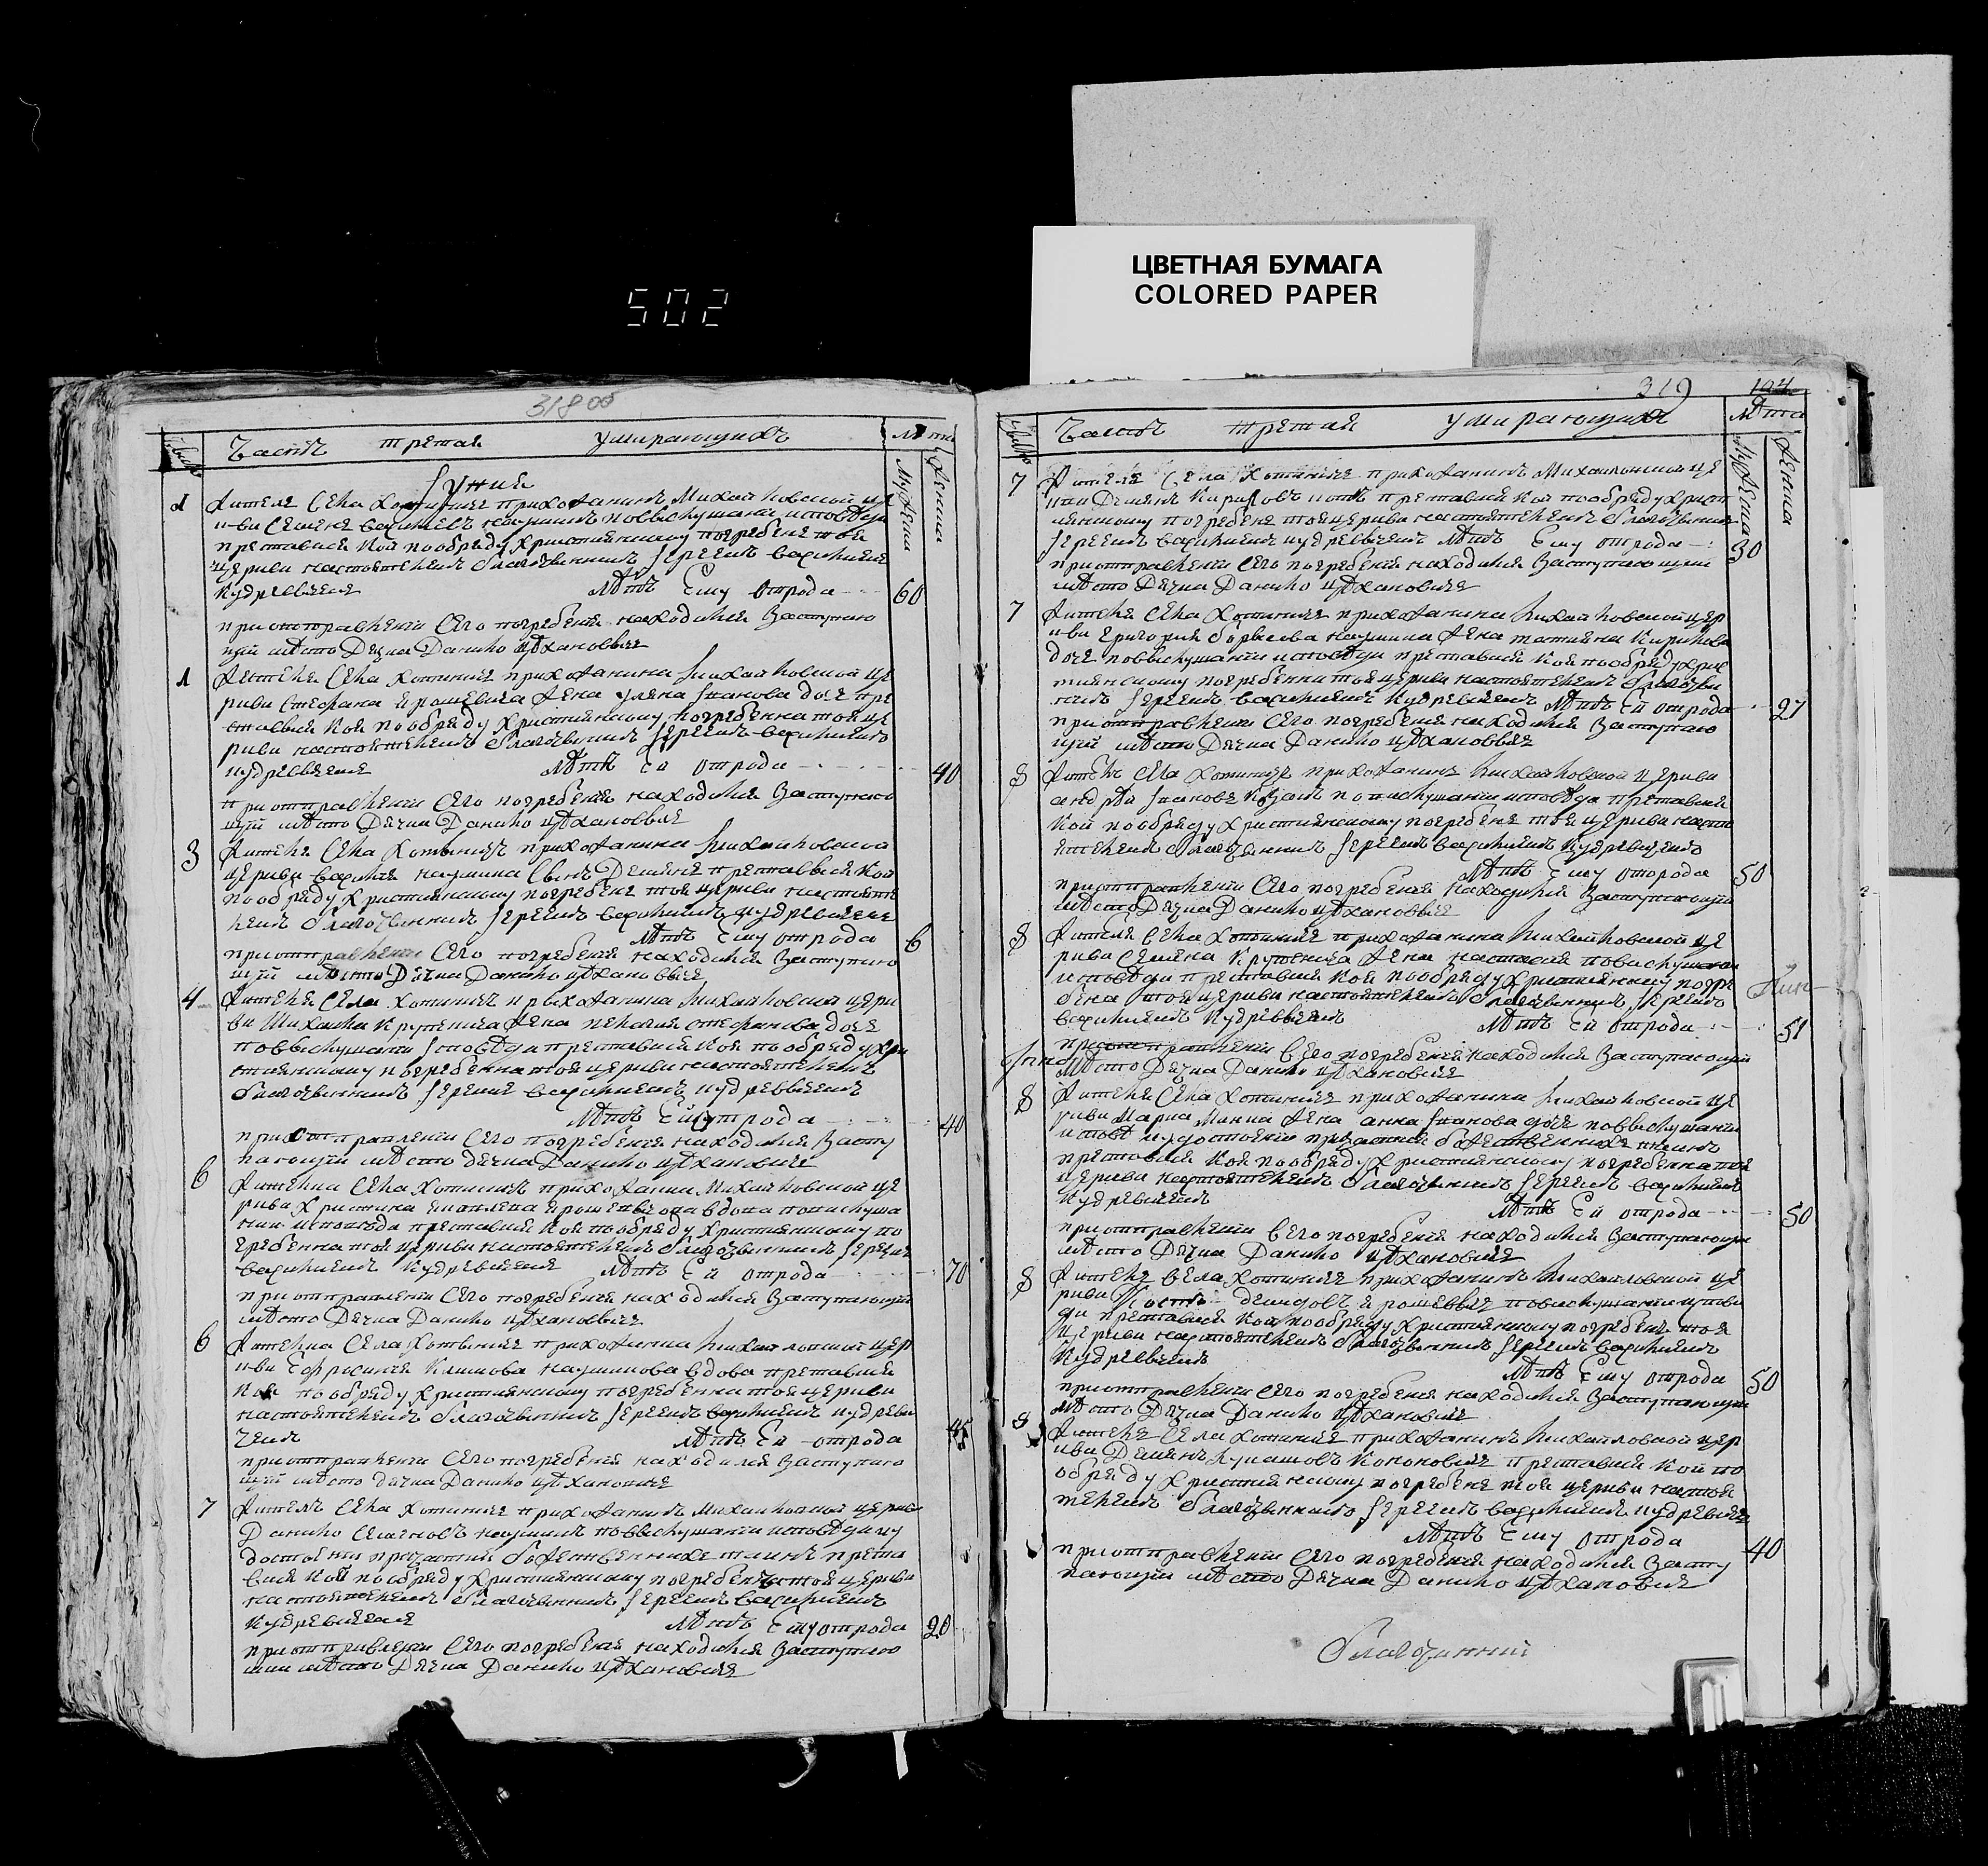 502
ЦВЕТНАЯ БУМАГА
COLORED PAPER
318 об
Часть третая умирающихъ Лѣта
Мужеска Женска
Iуния
1 Житель Села Хотинля прихожанинъ Михайловской це
ркви Семенъ по выслушании исповѣди
преставися кой пообряду християнскому погребенъ тоей
церкви настоятелемъ благочиннымъ Iереемъ василиемъ
Кудревичемъ Лѣтъ Ему отрода 60
приотправлении Сего погребения находился Заступаю
щий мѣсто Дячка Данило Цѣхановичъ
1 Жителя Села прихожанина Михайловской це
ркви Стефана Ярошевича жена Уляна Iванова доче пре
ставися кой пообряду християнскому погребенна тоей це
ркви настоятелемъ благочиннымъ Iереемъ василиемъ
Кудревичемъ Лѣтъ Ей отрода 40
приотправлении Сего погребения находился Заступаю
щий мѣсто Дячка Данило Цѣхановичъ
3 Жителя Села прихожанина Михайловской
церкви василя Сынъ преставися кой
пообряду християнскому погребенъ тоей церкви настояте
лемъ благочиннымъ Iереемъ василиемъ Кудревичемъ
Лѣтъ Ему отрода 6
приотправлении Сего погребения находился Заступаю
щий мѣсто Дячка Данило Цѣхановичъ
4 Жителя Села прихожанина Михайловской церк
ви Михаила Крупенича жена Пелагия Стефанова доче
по выслушании Iсповѣди преставися коя пообряду хри
стиянскому погребенна тоей церкви настоятелемъ
благочиннымъ Iереемъ василиемъ Кудревичемъ
Лѣтъ Ей отрода 40
приотправлении Сего погребения находился Засту
пающий мѣсто дячка Данило Цѣхановичъ
6 Жителка Села прихожанка Михайловской це
ркви Христина вдова по выслуша
нии исповѣди преставися коя пообряду християнскому по
гребенна тоей церкви настоятелемъ благочиннымъ Iереемъ
василиемъ Кудревичемъ Лѣтъ Ей отрода 70
приотправлении Сего погребения находился Заступающий
мѣсто Дячка Данило Цѣхановичъ
6 Жителка Села прихожанка Михайловской цер
кви Ефросиния Климова вдова преставися
коя пообряду християнскому погребенна тоей церкви
настоятелемъ благочиннымъ Iереемъ василиемъ Кудреви
чемъ Лѣтъ Ей отрода 45
приотправлении Сего погребения находился Заступаю
щий мѣсто дячка Данило Цѣхановичъ
7 Житель Села прихожанинъ Михайловской церкви
Данило Семеновъ по выслушании исповѣди и у
достоении причастий божественныхъ таинъ преста
вися кой пообряду християнскому погребенъ тоей церкви
настоятелемъ благочиннымъ Iереемъ василиемъ
Кудревичемъ Лѣтъ Ему отрода 20
приотправлении Сего погребения находился Заступаю
щий мѣсто Дячка Данило Цѣхановичъ
319
Часть третая умирающихъ Лѣта
Мужеска Женска
7 Житель Села прихожанинъ Михайловской це
ркви преставися кой пообряду христи
янскому погребенъ тоей церкви настоятелемъ благочиннымъ
Iереемъ василиемъ Кудревичемъ Лѣтъ Ему отрода 30
приотправлении Сего погребения находился Заступающий
мѣсто Дячка Данило Цѣхановичъ
7 Жителя Села прихожанина Михайловской цер
кви Григория жена Татияна Кирилова
доче по выслушании исповѣди преставися коя пообряду хрис
тиянскому погребенна тоей церкви настоятелемъ благочин
нымъ Iереемъ василиемъ Кудревичемъ Лѣтъ Ей отрода 27
приотправлении Сего погребения находился Заступаю
щий мѣсто Дячка Данило Цѣхановичъ
8 Житель Села прихожанинъ Михайловской церкви
Андрей Iвановъ по выслушании исповѣди преставися
кой пообряду християнскому погребенъ тоей церкви насто
ятелемъ благочиннымъ Iереемъ василиемъ Кудревичемъ
Лѣтъ Ему отрода 50
приотправлении Сего погребения находился Заступающий
мѣсто Дячка Данило Цѣхановичъ
8 Жителя Села прихожанина Михайловской це
ркви Семена Крупенича жена Настасия по выслушании
исповѣди преставися коя пообряду християнскому погре
бена тоей церкви настоятелемъ благочиннымъ Iереемъ
василиемъ Кудревичемъ Лѣтъ Ей отрода 51
приотправлении Сего погребения находился Заступающий
мѣсто Дячка Данило Цѣхановичъ
8 Жителя Села прихожанина Михайловской це
ркви жена Анна Iванова доче по выслушании
исповѣди и удостоении причастий божественныхъ таинъ
преставися коя пообряду християнскому погребенна тоей
церкви настоятелемъ благочиннымъ Iереемъ василиемъ
Кудревичемъ Лѣтъ Ей отрода 50
приотправлении Сего погребения находился Заступающий
мѣсто Дячка Данило Цѣхановичъ
8 Житель Села прихожанинъ Михайловской це
ркви Демидовъ Ярошевичъ по выслушании исповѣ
ди преставися кой пообряду християнскому погребенъ тоей
церкви настоятелемъ благочиннымъ Iереемъ василиемъ
Кудревичемъ Лѣтъ Ему отрода 50
приотправлении Сего погребения находился Заступающий
мѣсто Дячка Данило Цѣхановичъ
8 Житель Села прихожанинъ Михайловской цер
кви преставися кой по
обряду християнскому погребенъ тоей церкви настоя
телемъ благочиннымъ Iереемъ василиемъ Кудревичемъ
Лѣтъ Ему отрода 40
приотправлении Сего погребения находился Засту
пающий мѣсто Дячка Данило Цѣхановичъ
благочинный